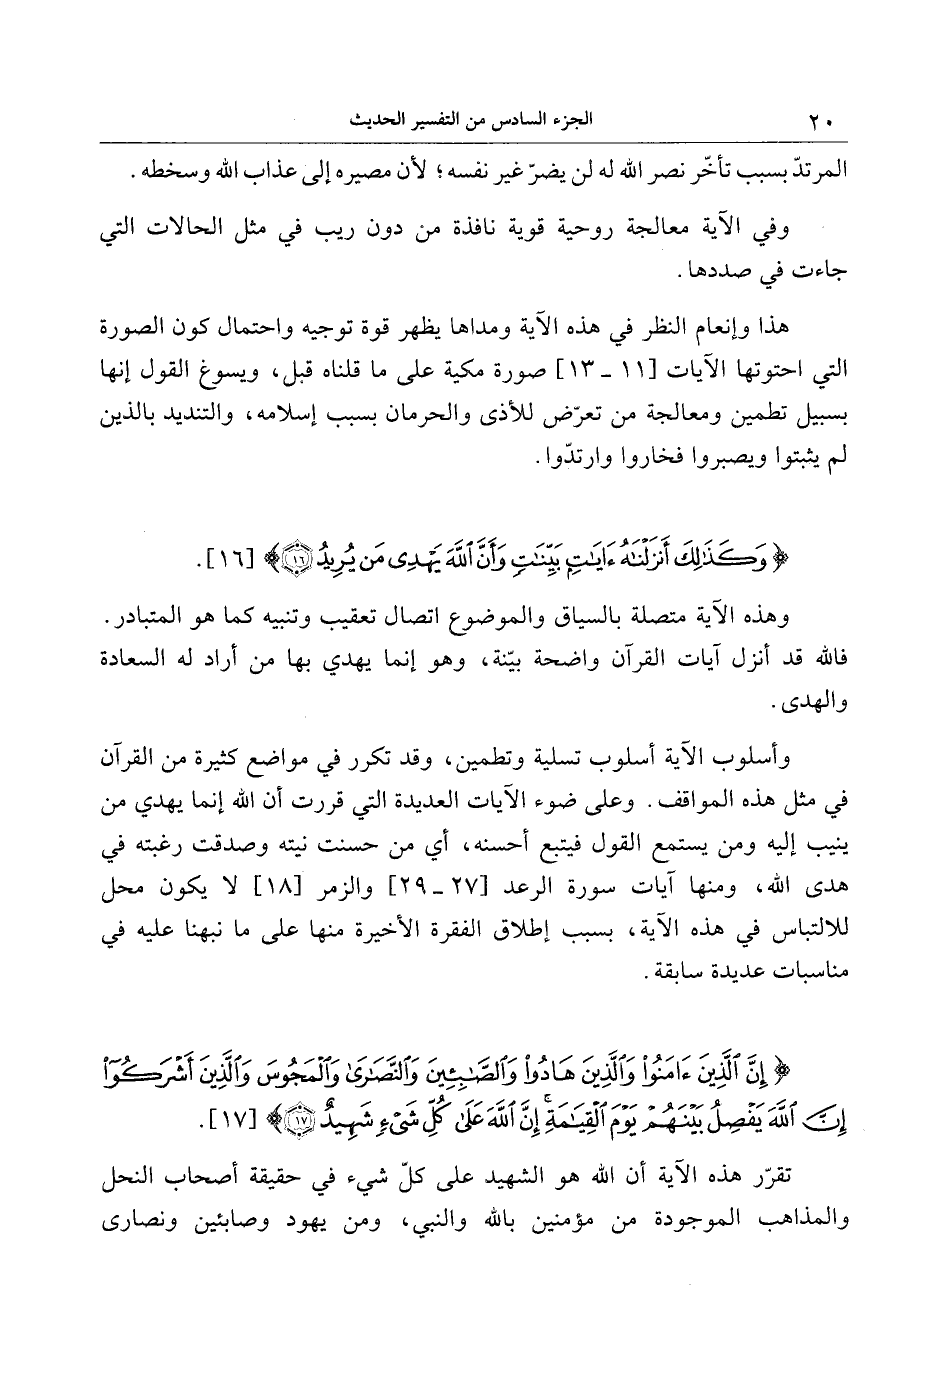 ٢٠ الجزء السادس من التفسير الحديث
المرتدّ بسبب تأخّر نصر الله له لن يضرّ غير نفسه؛ لأن مصيره إلى عذاب الله وسخطه.
وفي الآية معالجة روحية قوية نافذة من دون ريب في مثل الحالات التي
جاءت في صددها.
هذا وإنعام النظر في هذه الآية ومداها يظهر قوة توجيه واحتمال كون الصورة
التي احتوتها الآيات [١١ ـ ١٣] صورة مكية على ما قلناه قبل، ويسوغ القول إنها
بسبيل تطمين ومعالجة من تعرّض للأذى والحرمان بسبب إسلامه، والتنديد بالذين
لم يثبتوا ويصبروا فخاروا وارتدّوا.
﴿ وَكَذَٰلِكَ أَنزَلْنَٰهُ ءَايَٰتٍۭ بَيِّنَٰتٍ وَأَنَّ ٱللَّهَ يَهْدِى مَن يُرِيدُ ١٦ ﴾ [١٦].
وهذه الآية متصلة بالسياق والموضوع اتصال تعقيب وتنبيه كما هو المتبادر.
فالله قد أنزل آيات القرآن واضحة بيّنة، وهو إنما يهدي بها من أراد له السعادة
والهدى.
وأسلوب الآية أسلوب تسلية وتطمين، وقد تكرر في مواضع كثيرة من القرآن
في مثل هذه المواقف. وعلى ضوء الآيات العديدة التي قررت أن الله إنما يهدي من
ينيب إليه ومن يستمع القول فيتبع أحسنه، أي من حسنت نيته وصدقت رغبته في
هدى الله، ومنها آيات سورة الرعد [٢٧ ـ ٢٩] والزمر [١٨] لا يكون محل
للالتباس في هذه الآية، بسبب إطلاق الفقرة الأخيرة منها على ما نبهنا عليه في
مناسبات عديدة سابقة.
﴿ إِنَّ ٱلَّذِينَ ءَامَنُوا۟ وَٱلَّذِينَ هَادُوا۟ وَٱلصَّٰبِـِٔينَ وَٱلنَّصَٰرَىٰ وَٱلْمَجُوسَ وَٱلَّذِينَ أَشْرَكُوٓا۟
إِنَّ ٱللَّهَ يَفْصِلُ بَيْنَهُمْ يَوْمَ ٱلْقِيَٰمَةِ ۚ إِنَّ ٱللَّهَ عَلَىٰ كُلِّ شَىْءٍ شَهِيدٌ ١٧ ﴾ [١٧].
تقرّر هذه الآية أن الله هو الشهيد على كلّ شيء في حقيقة أصحاب النحل
والمذاهب الموجودة من مؤمنين بالله والنبي، ومن يهود وصابئين ونصارى